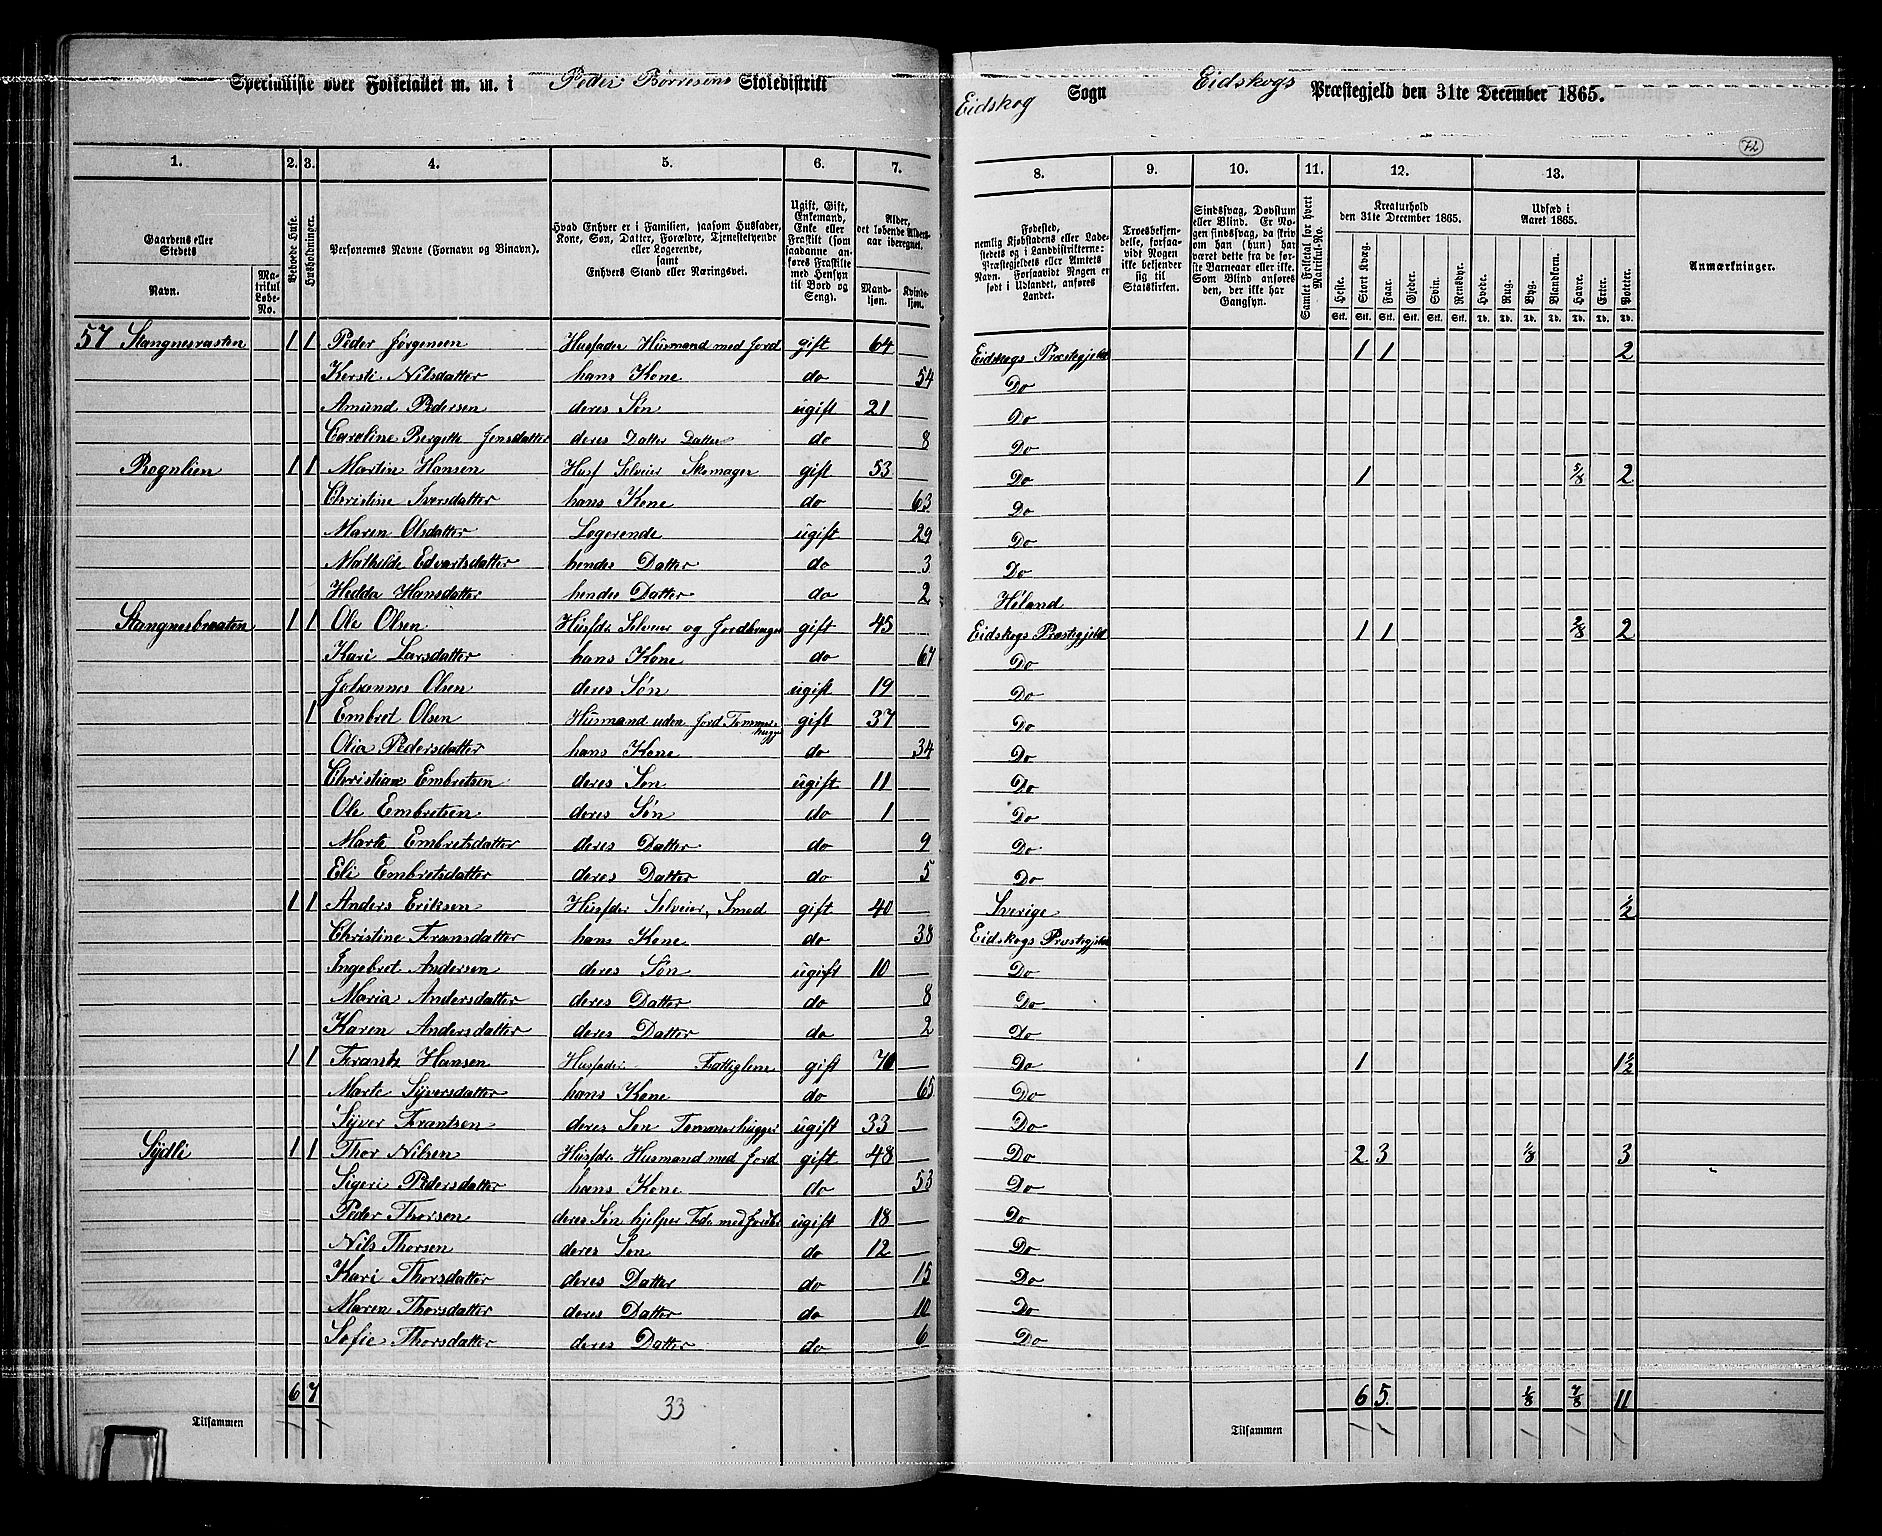 Specialliste over Folketallet m. m. i Peder Børresens Skoledistrikt
Eidskog Sogn Eidskogs Præstegjeld den 31te December 1865.
72
1. 2. 3. 4. 5. 6. 7.
8. 9. 10. 11. 12. 13.
Gaardens eller Stedets
Navn.
Matrikul Løbe-No.
Bebodde Huse.
Husholdninger.
Personernes Navne (Fornavn og Binavn).
Hvad Enhver er i Familien, saasom Husfader, Kone, Søn, Datter, Forældre, Tjenestetyende eller Logerende, samt Enhvers Stand eller Næringsvei.
Ugift, Gift, Enkemand, Enke eller Fraskilt (som saadanne anføres Fraskilte med Hensyn til Bord og Seng).
Alder, det løbende Aldersaar iberegnet.
Mandkjøn. Kvindekjøn.
Fødested, nemlig Kjøbstadens eller Ladestedets og i Landdistrikterne: Præstegjeldets eller Amtets Navn. Forsaavidt Nogen er født i Udlandet, anføres Landet.
Troesbekjendelse, forsaavidt Nogen ikke bekjender sig til Statskirken.
Sindssvag, Døvstum eller Blind. Er Nogen sindssvag, da skriv om han (hun) har været dette fra de første Barneaar eller ikke. Som Blind anføres den, der ikke har Gangsyn.
Samlet Folketal for hvert Matrikul-No.
Kreaturhold den 31te December 1865.
Heste. Stort Kvæg. Faar. Gjeder. Svin. Rensdyr.
Stk. Stk. Stk. Stk. Stk. Stk.
Udsæd i Aaret 1865.
Hvede. Rug. Byg. Blandkorn. Havre. Erter. Poteter.
Td. Td. Td. Td. Td. Td. Td.
Anmærkninger.
57 Stangnesrasten 1 1 Peder Jørgensen Husfader Husmand med Jord gift 64 Eidskogs Præstegjeld 1 1 2
Kersti Nilsdatter hans Kone do 54 Do
Amund Pedersen deres Søn ugift 21 Do
Caroline Bergitte Jensdatter deres Datter Datter do 8 Do
Rognlien 1 1 Martin Hansen Husf Selveier Skomager gift 53 Do 1 5/8 2
Christine Iversdatter hans Kone do 63 Do
Maren Olsdatter Logerende ugift 29 Do
Mathilde Edvartsdatter hendes Datter do 3 Do
Hedda Hansdatter hendes Datter do 2 Høland
Stangnesbraaten 1 1 Ole Olsen Husfdr Selveier og Jordbruger gift 45 Eidskogs Præstegjeld 1 1 2/8 2
Kari Larsdatter hans Kone do 67 Do
Johannes Olsen deres Søn ugift 19 Do
1 Embret Olsen Husmand uden Jord Tømmerhugger gift 37 Do
Olia Pedersdatter hans Kone do 34 Do
Christian Embretsen deres Søn ugift 11 Do
Ole Embretsen deres Søn do 1 Do
Marte Embretsdatter deres Datter do 9 Do
Eli Embretsdatter deres Datter do 5 Do
1 1 Anders Eriksen Husfder Selveier, Smed gift 40 Sverige 1/2
Christine Fransdatter hans Kone do 38 Eidskogs Præstegjeld
Ingebret Andersen deres Søn ugift 10 Do
Maria Andersdatter deres Datter do 8 Do
Karen Andersdatter deres Datter do 2 Do
1 1 Frantz Hansen Husfader Fattiglem gift 70 Do 1 1 1/2
Marte Syversdatter hans Kone do 65 Do
Syver Frantsen deres Søn Tømmerhugger ugift 33 Do
Sydli 1 1 Thor Nilsen Husfdr Husmand med Jord gift 48 Do 2 3 1/8 3
Sigeri Pedersdatter hans Kone do 53 Do
Peder Thorsen deres Søn hjelper Fdr med Jordbr ugift 18 Do
Nils Thorsen deres Søn do 12 Do
Kari Thorsdatter deres Datter do 15 Do
Maren Thorsdatter deres Datter do 10 Do
Sofie Thorsdatter deres Datter do 6 Do
6 7 6 5 1/8 7/8 11
Tilsammen 33 Tilsammen